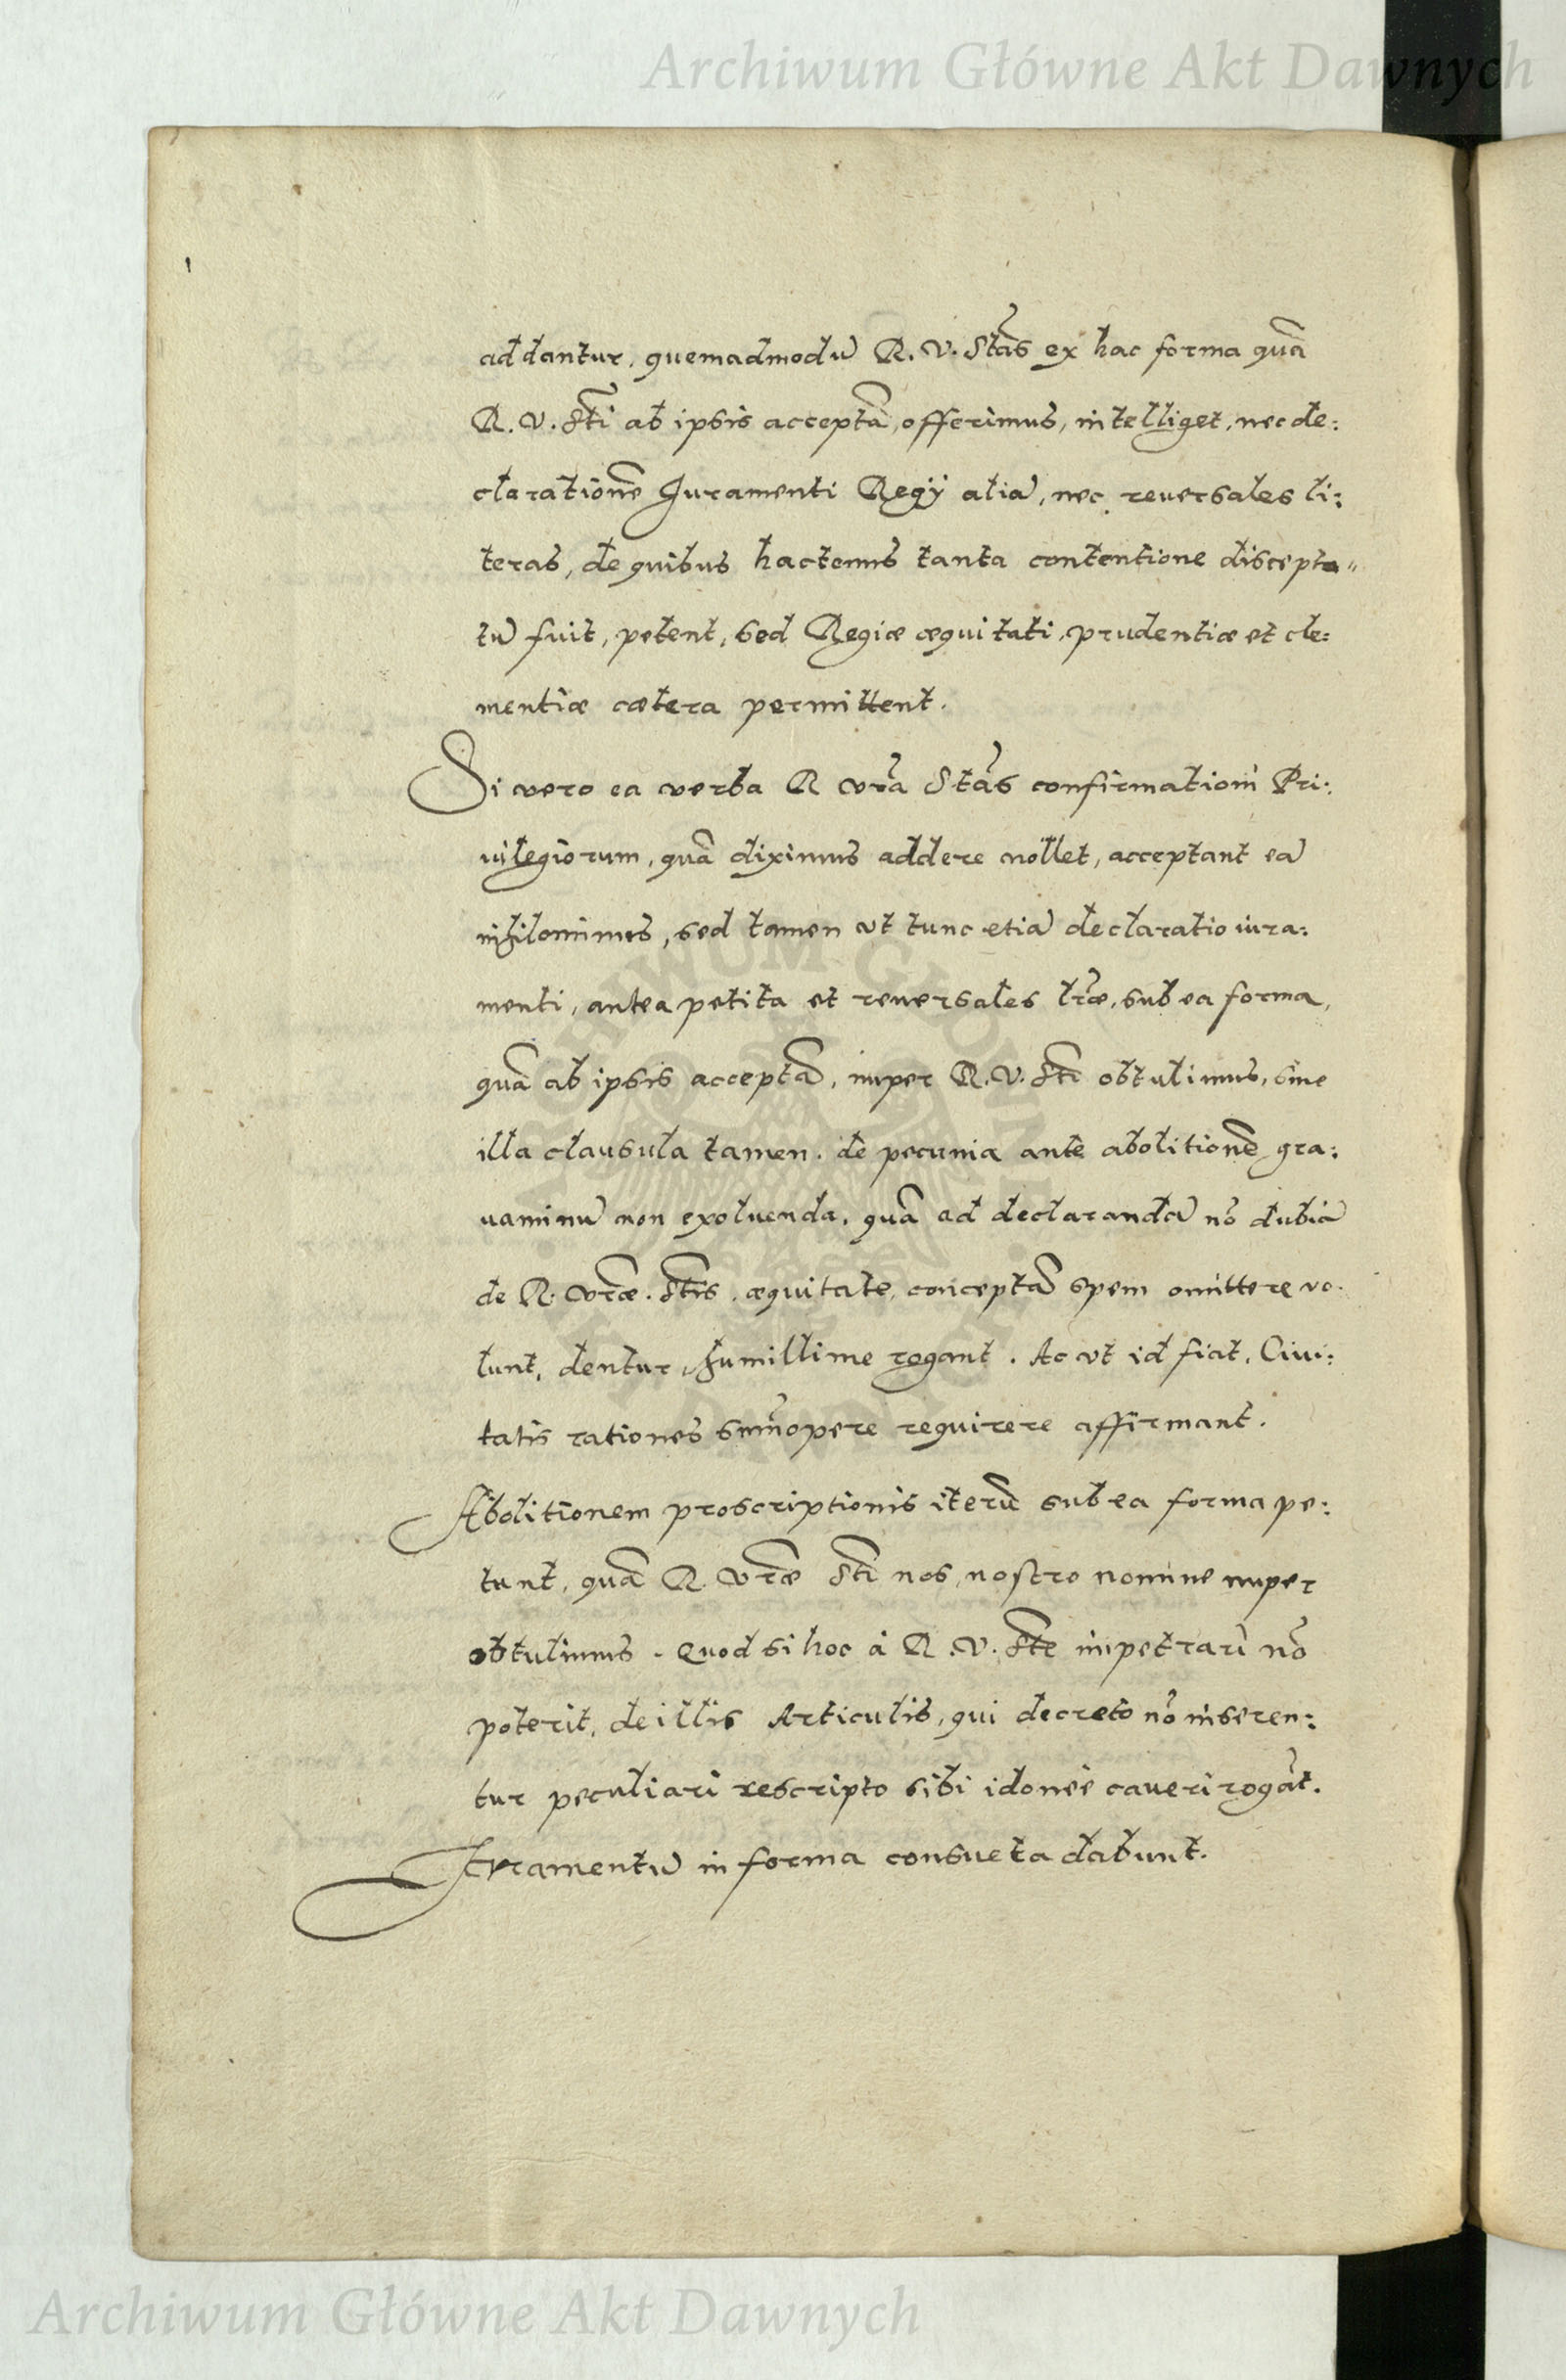 Archiwum Główne Akt Dawnych
addantur, quemadmodū R. V. Stãs ex hac forma quã
R. V. Stĩ ab ipsis acceptã, offerimus, intelliget, nec de:
clarationẽ Juramenti Regÿ aliã, nec reuersales li:
teras, de quibus hactenus tanta contentione discepta„
tũ fuit, petent, sed Regiæ æquitati, prudentiæ et cle:
mentiæ cætera permittent.
Si vero ea verba R vr̃a Stãs confirmationi Pri:
uilegiorum, quã diximus addere nollet, acceptant eã
nihilominus, sed tamen vt tunc etiã declaratio iura:
menti, antea petita et reuersales lr̃æ, sub ea forma,
quã ab ipsis acceptã, nuper R. V. Stĩ obtulimus, sine
illa clausula tamen. de pecunia ante abolitionẽ gra:
uaminũ non exoluenda, quã ad declarandã nõ dubiã
de R. vr̃æ. Stĩs. æquitate, conceptã spem omittere vo.
lunt, dentur, humillime rogant. Ac vt id fiat, Ciui:
tatis rationes sum̃opere requirere affirmant.
Abolitionem proscriptionis iterũ sub ea forma pe:
tunt, quã R. vr̃æ Stĩ nos, nostro nomine nuper
obtulimus. Quod si hoc à R. V. Stẽ impetrari nõ
poterit, de illis Articulis, qui decreto nõ inseren:
tur peculiari rescripto sibi idoneè caueri rogãt.
Juramentũ in forma consueta dabunt.
Archiwum Główne Akt Dawnych